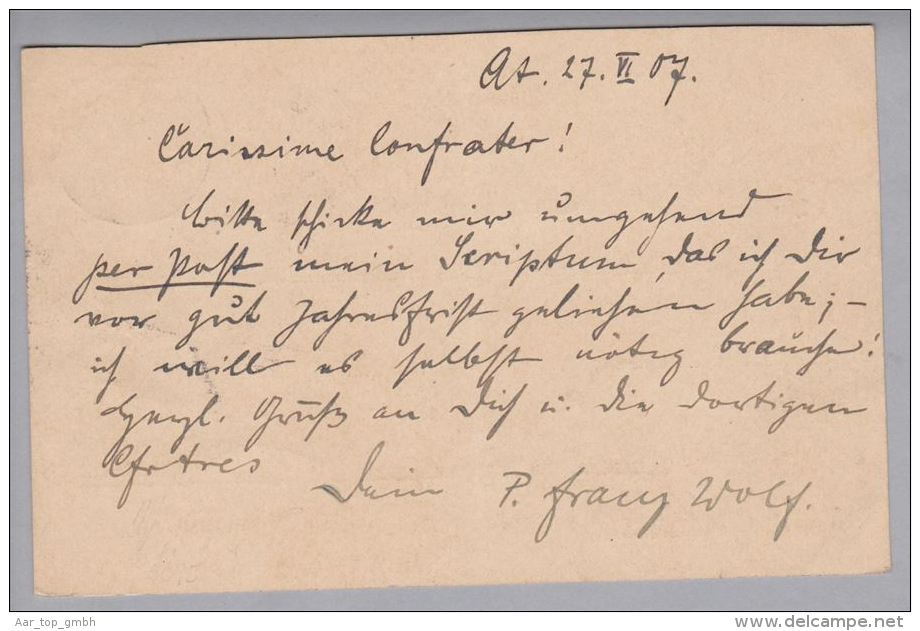 At. 27. VI 07.
Carissime Confrater!
Bitte schicke mir umgehend
per Post mein Scriptum, das ich Dir
vor gut Jahresfrist geliehen habe; –
ich will es selbst nötig brauche!
Herzl. Gruß an Dich u. die dortigen
Cfrtres
Dein P. Franz Wolf.
Aar_top_gmbh
www.delcampe.net